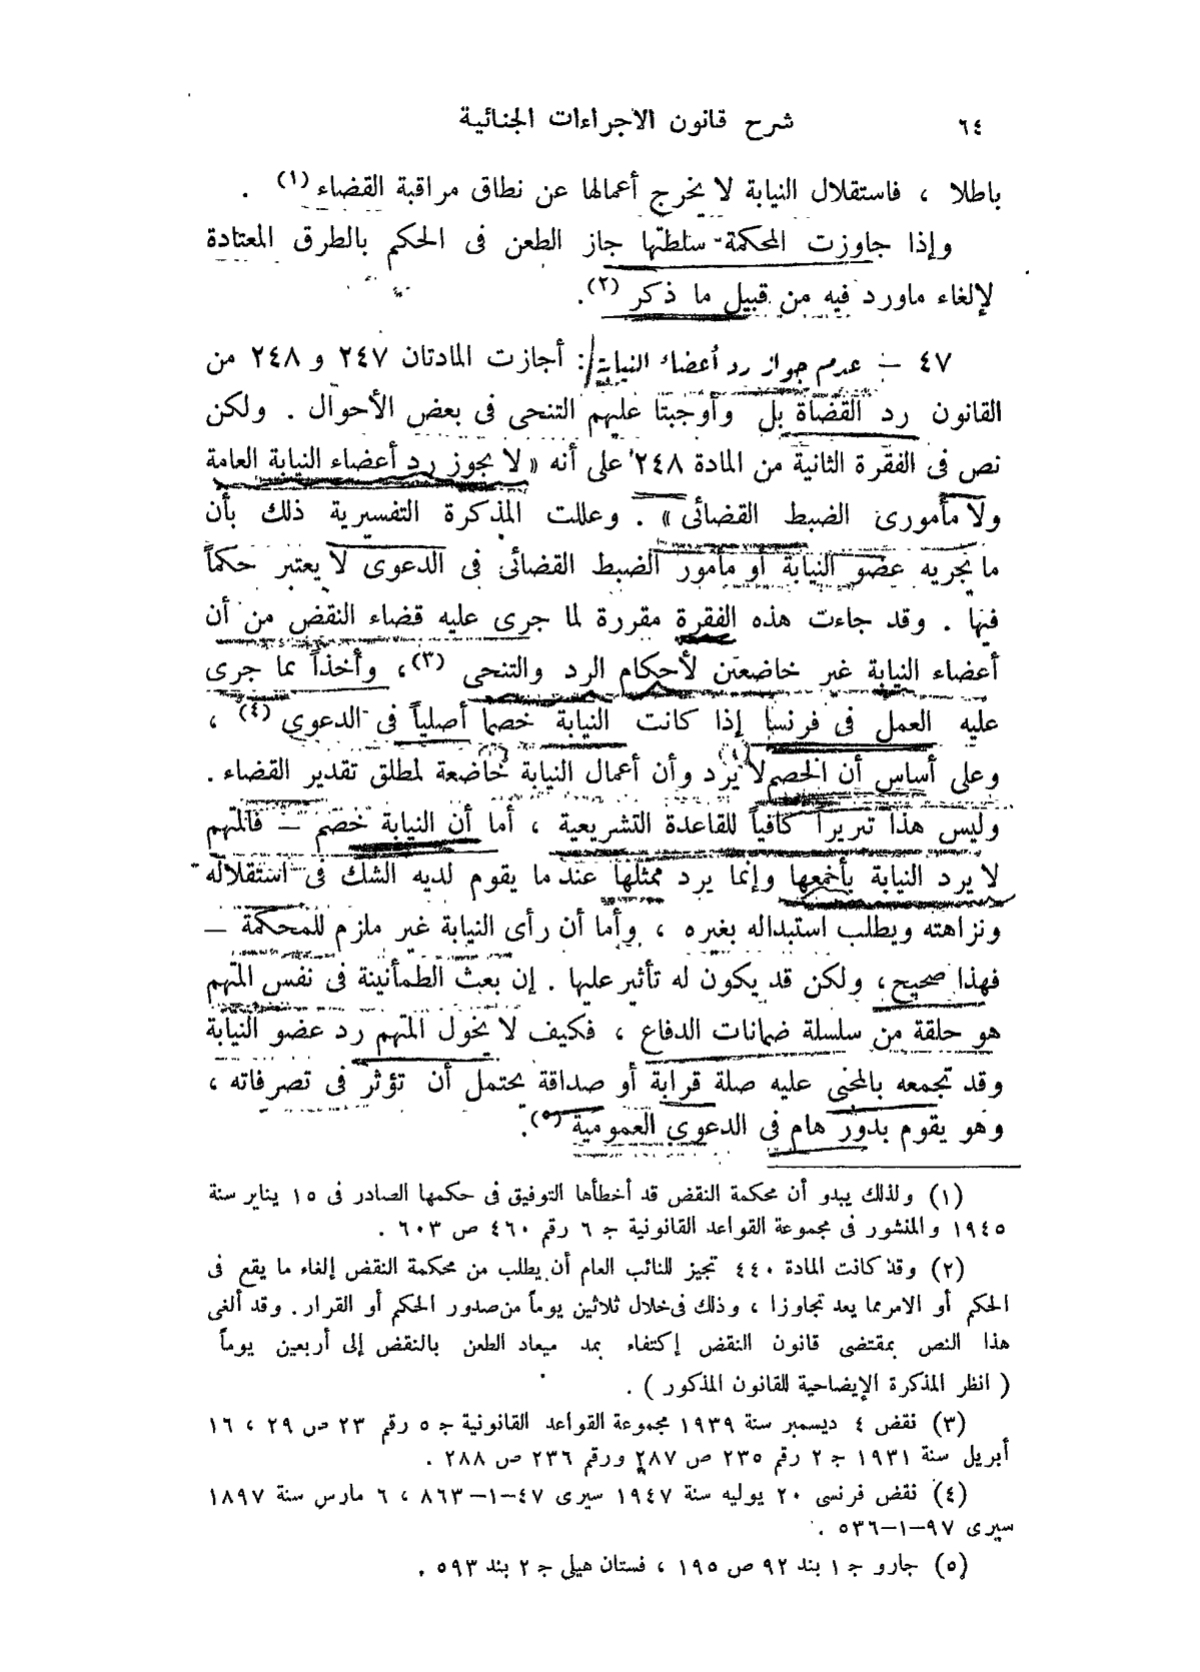 ٦٤
شرح قانون الاجراءات الجنائية
باطلا ، فاستقلال النيابة لا يخرج أعمالها عن نطاق مراقبة القضاء (١) .
وإذا جاوزت المحكمة سلطتها جاز الطعن فى الحكم بالطرق المعتادة
لإلغاء ماورد فيه من قبيل ما ذكر (٢).
٤٧ – عدم جواز رد أعضاء النيابة : أجازت المادتان ٢٤٧ و ٢٤٨ من
القانون رد القضاة بل وأوجبتا عليهم التنحى فى بعض الأحوال . ولكن
نص فى الفقرة الثانية من المادة ٢٤٨ على أنه « لا يجوز رد أعضاء النيابة العامة
ولا مأمورى الضبط القضائى » . وعللت المذكرة التفسيرية ذلك بأن
ما يجريه عضو النيابة أو مأمور الضبط القضائى فى الدعوى لا يعتبر حكماً
فيها . وقد جاءت هذه الفقرة مقررة لما جرى عليه قضاء النقض من أن
أعضاء النيابة غير خاضعين لأحكام الرد والتنحى (٣) ، وأخذاً بما جرى
عليه العمل فى فرنسا إذا كانت النيابة خصما أصلياً فى الدعوى (٤) ،
وعلى أساس أن الخصم لا يرد وأن أعمال النيابة خاضعة لمطلق تقدير القضاء .
وليس هذا تبريراً كافياً للقاعدة التشريعية ، أما أن النيابة خصم – فالمتهم
لا يرد النيابة بأجمعها وإنما يرد ممثلها عند ما يقوم لديه الشك فى استقلاله
ونزاهته ويطلب استبداله بغيره ، وأما أن رأى النيابة غير ملزم للمحكمة –
فهذا صحيح ، ولكن قد يكون له تأثير عليها . إن بعث الطمأنينة فى نفس المتهم
هو حلقة من سلسلة ضمانات الدفاع ، فكيف لا يخول المتهم رد عضو النيابة
وقد تجمعه بالمجنى عليه صلة قرابة أو صداقة يحتمل أن تؤثر فى تصرفاته ،
وهو يقوم بدور هام فى الدعوى العمومية (٥).
(١) ولذلك يبدو أن محكمة النقض قد أخطأها التوفيق فى حكمها الصادر فى ١٥ يناير سنة
١٩٤٥ والمنشور فى مجموعة القواعد القانونية ج ٦ رقم ٤٦٠ ص ٦٠٣ .
(٢) وقد كانت المادة ٤٤٠ تجيز للنائب العام أن يطلب من محكمة النقض إلغاء ما يقع فى
الحكم أو الامر مما يعد تجاوزا ، وذلك فى خلال ثلاثين يوماً من صدور الحكم أو القرار . وقد ألغى
هذا النص بمقتضى قانون النقض إكتفاء بمد ميعاد الطعن بالنقض إلى أربعين يوماً
( انظر المذكرة الإيضاحية للقانون المذكور ) .
(٣) نقض ٤ ديسمبر سنة ١٩٣٩ مجموعة القواعد القانونية ج ٥ رقم ٢٣ ص ٢٩ ، ١٦
أبريل سنة ١٩٣١ ج ٢ رقم ٢٣٥ ص ٢٨٧ ورقم ٢٣٦ ص ٢٨٨ .
(٤) نقض فرنسى ٢٠ يوليه سنة ١٩٤٧ سيرى ٤٧–١–٨٦٣ ، ٦ مارس سنة ١٨٩٧
سيرى ٩٧–١–٥٣٦ .
(٥) جارو ج ١ بند ٩٢ ص ١٩٥ ، فستان هيلى ج ٢ بند ٥٩٣ .